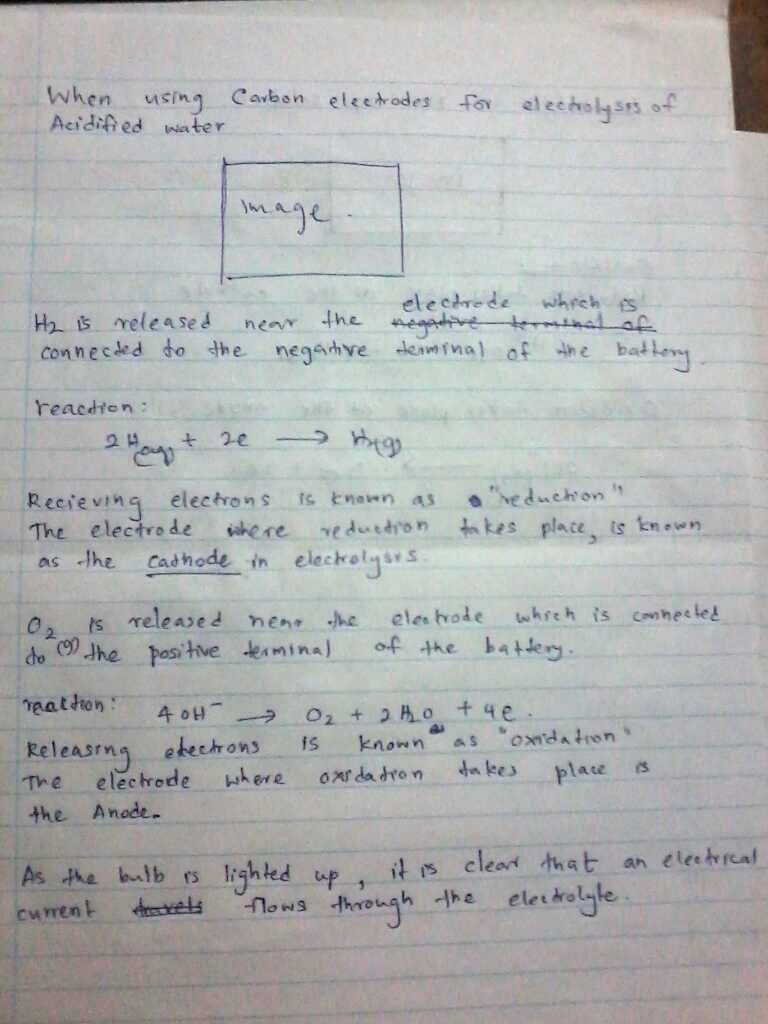 When using Carbon electrodes for electrolysis of
Acidified water
Image.
electrode which is
H2 is released near the negative terminal of
connected to the negative terminal of the battery.
reaction:
2H(aq) + 2e → H2(g)
Recieving electrons is known as "reduction"
The electrode where reduction takes place, is known
as the cathode in electrolysis.
O2 is released near the electrode which is connected
to (g) the positive terminal of the battery.
reaction: 4OH⁻ → O2 + 2H2O + 4e.
Releasing electrons is known as "oxidation"
The electrode where oxidation takes place is
the Anode.
As the bulb is lighted up, it is clear that an electrical
current travels flows through the electrolyte.